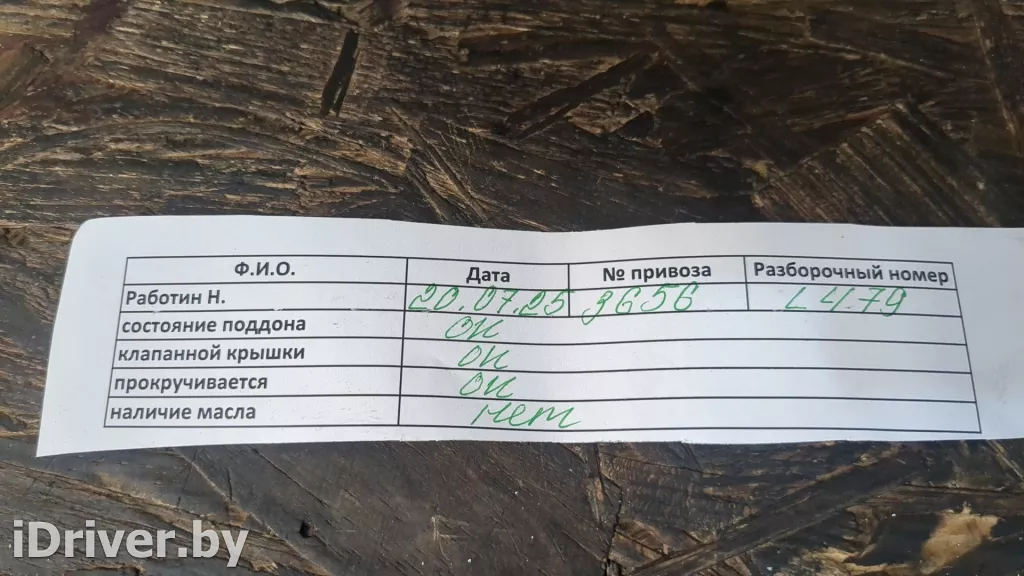 Ф.И.О. Дата № привоза Разборочный номер
Работин Н. 20.07.25 3656 L479
состояние поддона ок
клапанной крышки ок
прокручивается ок
наличие масла нет
iDriver.by